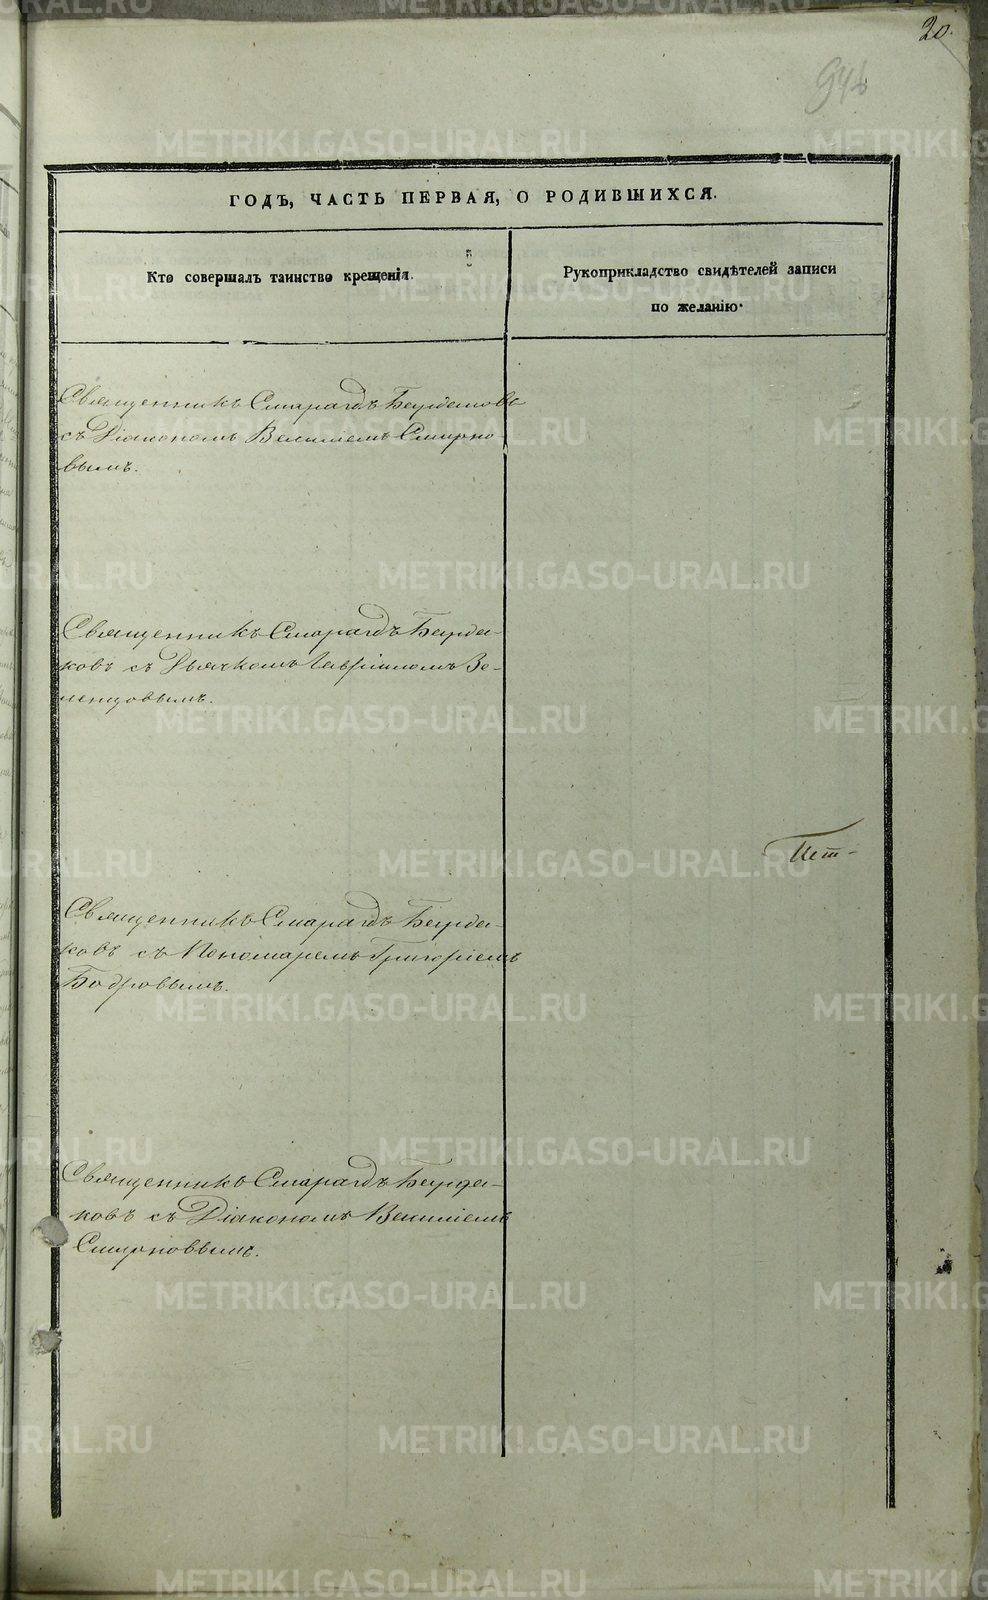 20.
ГОДЪ, ЧАСТЬ ПЕРВАЯ, О РОДИВШИХСЯ.
Кто совершалъ таинство крещенія.
Рукоприкладство свидѣтелей записи
по желанію.
Священникъ Смарагдъ Бурдаковъ
съ Діакономъ Василіемъ Смирно-
вымъ.
Священникъ Смарагдъ Бурда-
ковъ съ Дьячкомъ Гавріиломъ Зе-
ленцовымъ.
Священникъ Смарагдъ Бурда-
ковъ съ Пономаремъ Григоріемъ
Бодровымъ.
Священникъ Смарагдъ Бурда-
ковъ съ Діакономъ Василіемъ
Смирновымъ.
METRIKI.GASO-URAL.RU